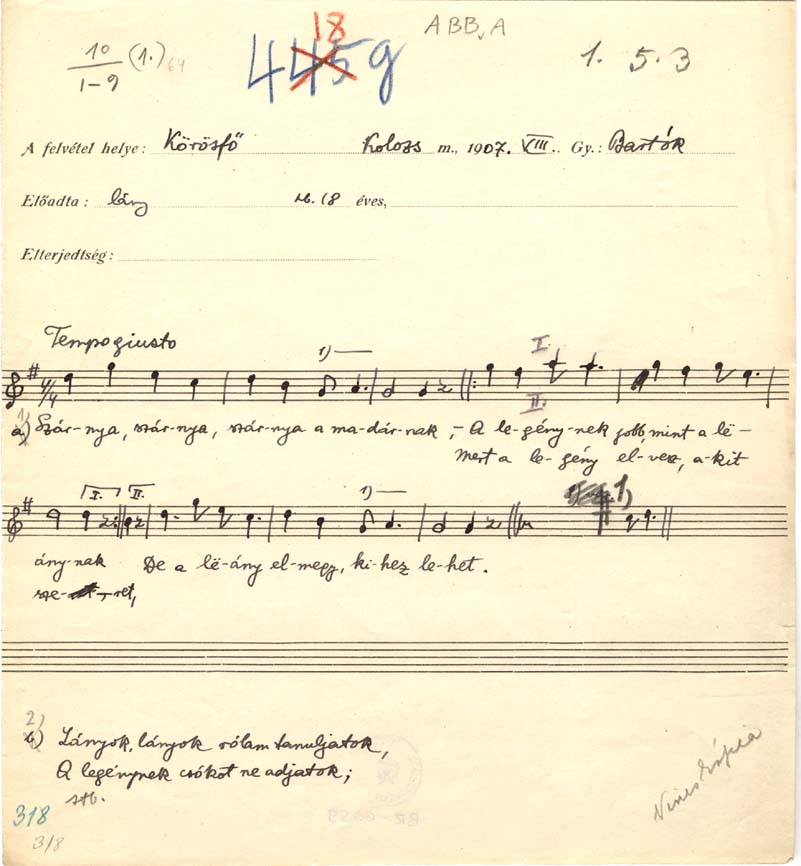 10 (1.) 64
1-9
18
4445g
ABBvA
1. 5. 3
A felvétel helye: Körösfő Kolozs m., 1907. VIII. Gy.: Bartók
Előadta: lány 18 éves,
Elterjedtség:
Tempo giusto
1)
I.
4/4
II.
1)
a) Szár-nya, szár-nya, szár-nya a ma-dár-nak, – A le-gény-nek jobb, mint a lë-
Mert a le-gény el-vesz, a-kit
I. II. 1) 1)
ány-nak De a lë-ány el-megy, ki-hez le-het.
sze-ret,
2)
b) Lányok, lányok rólam tanuljatok,
A legénynek csókot ne adjatok;
stb.
Nincs kópia
318
318